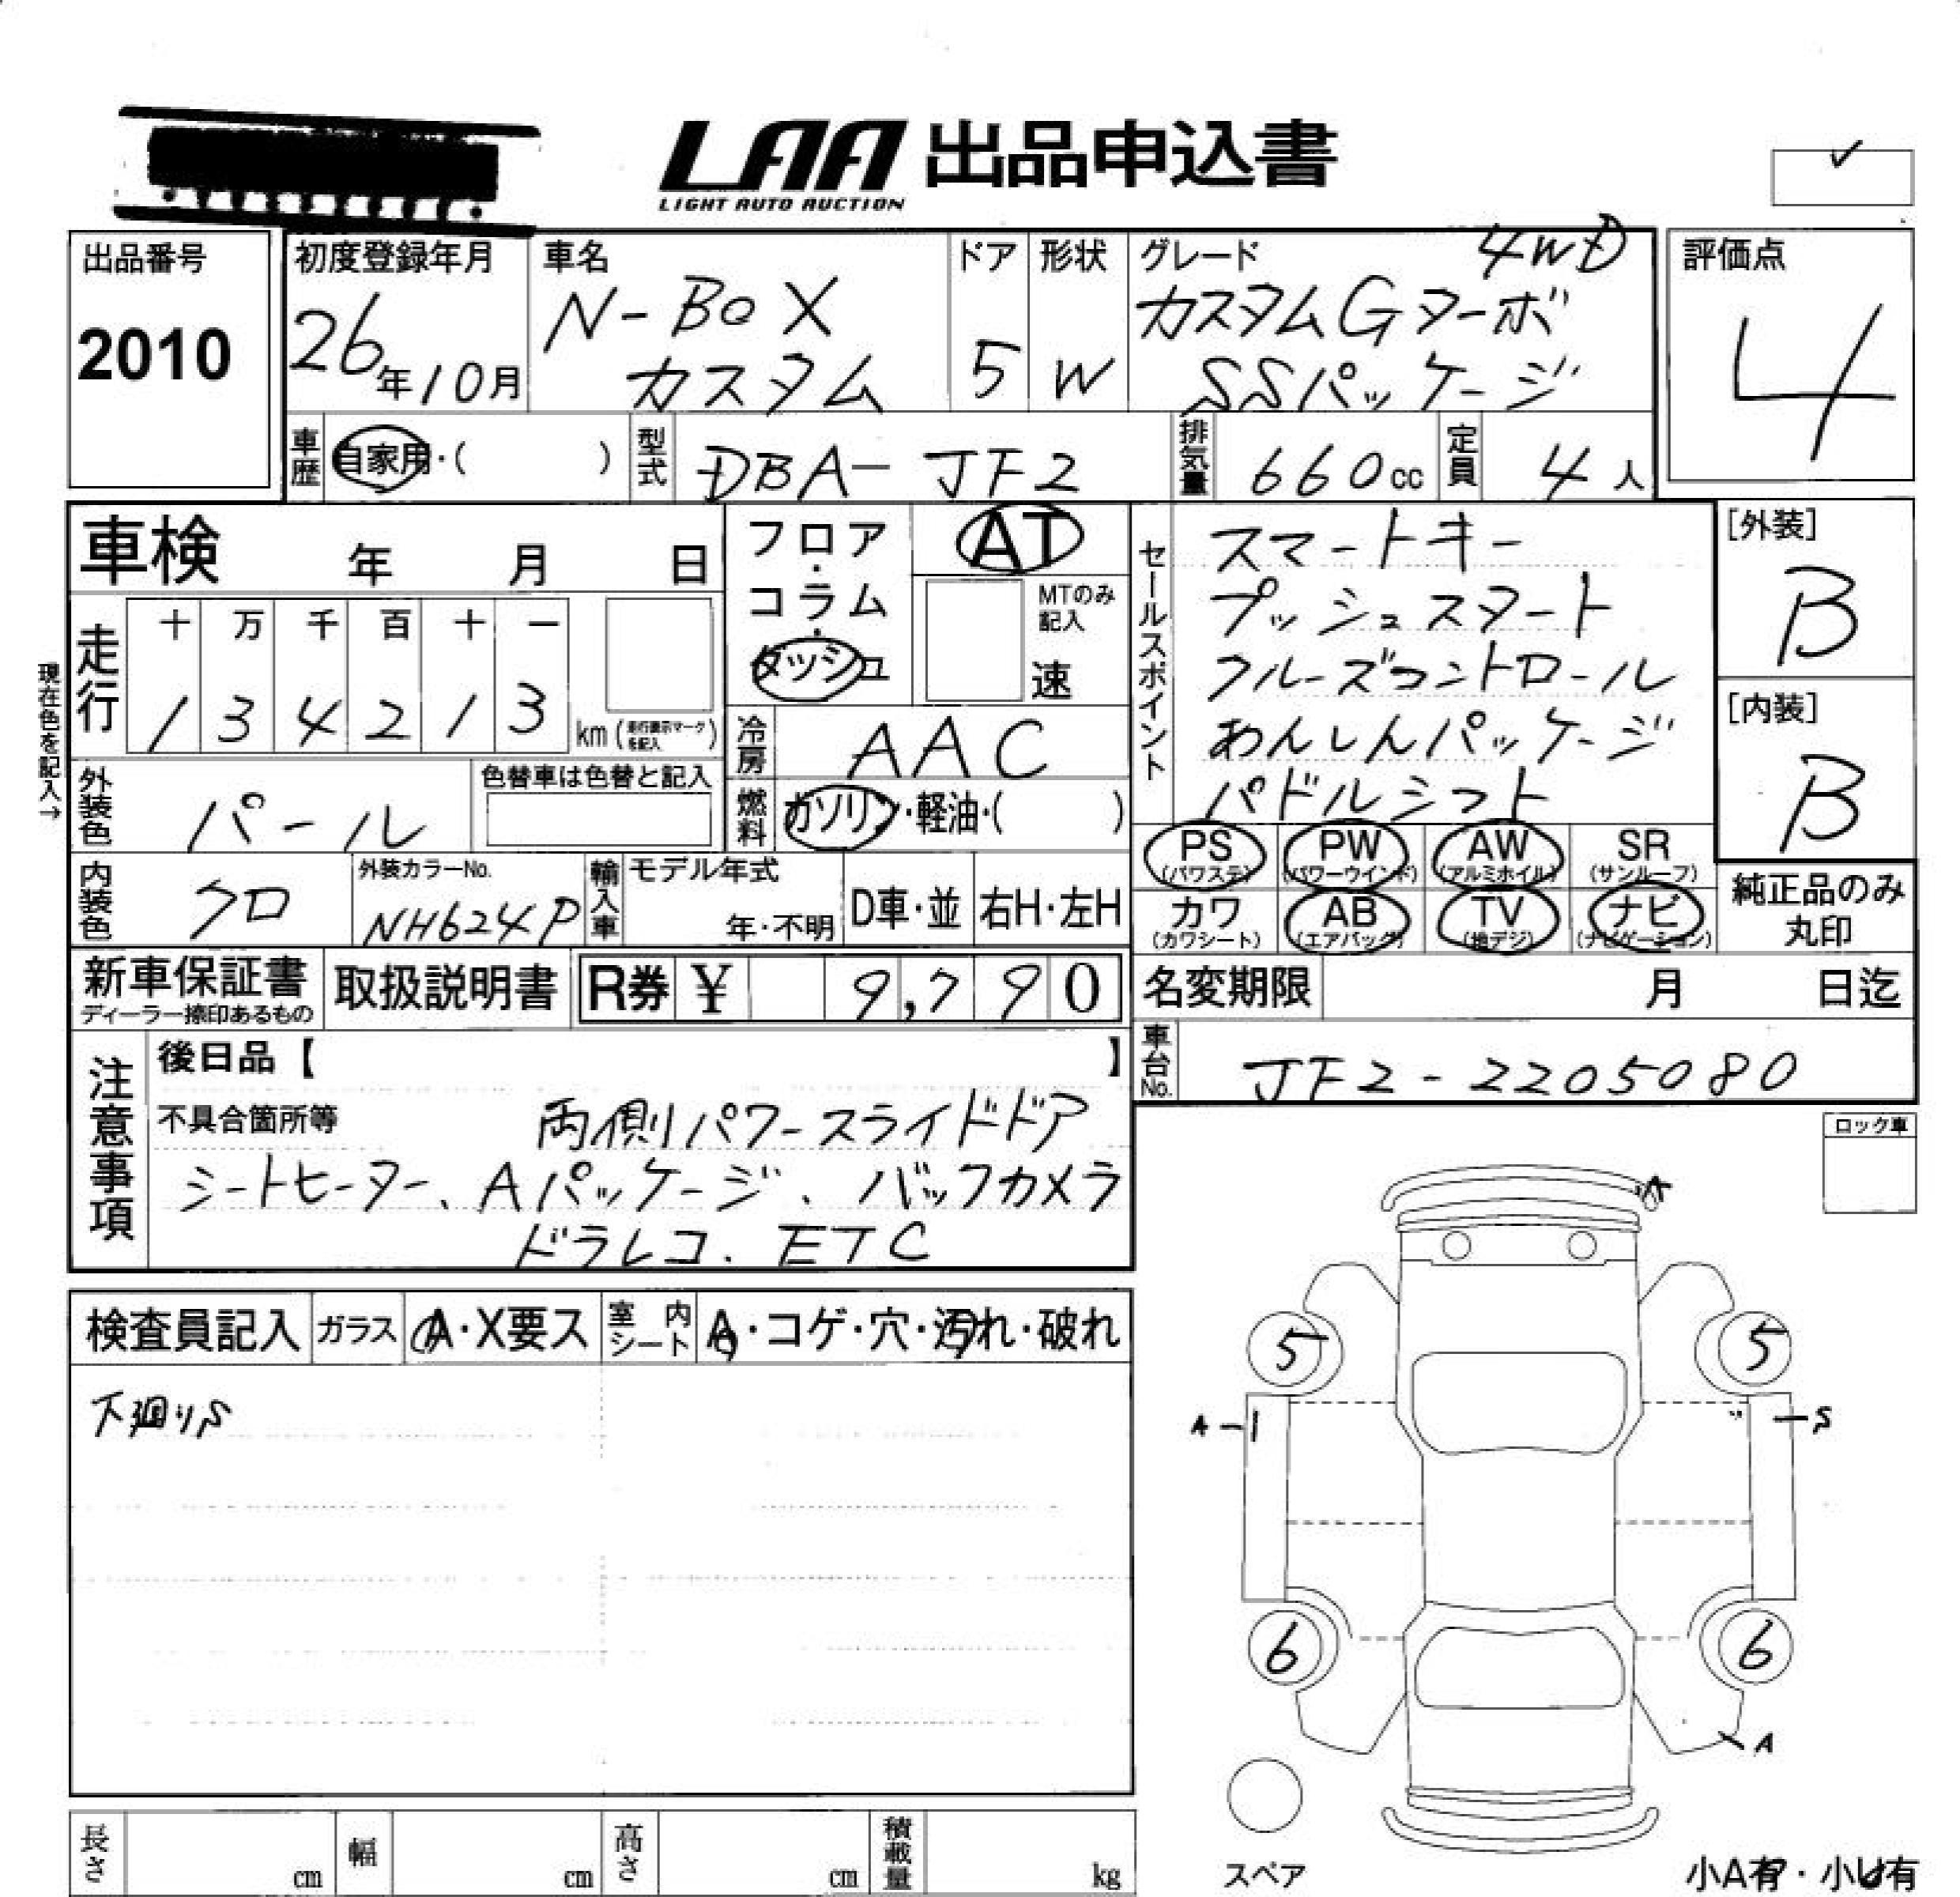 LAA 出品申込書
LIGHT AUTO AUCTION
✓
出品番号
2010
初度登録年月
26年10月
車名
N-BOX
カスタム
ドア
5
形状
W
グレード 4WD
カスタムGターボ
SSパッケージ
評価点
4
車歴 自家用・( )
型式 DBA-JF2
排気量 660cc
定員 4人
車検 年 月 日
フロア・コラム・ダッシュ
AT
MTのみ記入
速
現在色を記入→
走行
十 万 千 百 十 一
1 3 4 2 1 3 km (走行表示マークを記入)
冷房 AAC
燃料 ガソリン・軽油・( )
外装色 パール
色替車は色替と記入
内装色 クロ
外装カラーNo.
NH624P
輸入車
モデル年式
年・不明
D車・並
右H・左H
セールスポイント
スマートキー
プッシュスタート
クルーズコントロール
あんしんパッケージ
パドルシフト
[外装]
B
[内装]
B
PS (パワステ)
PW (パワーウインド)
AW (アルミホイル)
SR (サンルーフ)
カワ (カワシート)
AB (エアバッグ)
TV (地デジ)
ナビ (ナビゲーション)
純正品のみ
丸印
新車保証書
ディーラー捺印あるもの
取扱説明書
R券 ¥ 9,790
名変期限 月 日迄
車台No. JF2-2205080
注意事項
後日品【 】
不具合箇所等 両側パワースライドドア
シートヒーター、Aパッケージ、バックカメラ
ドラレコ、ETC
ロック車
検査員記入
ガラス A・X要ス
室内シート A・コゲ・穴・汚れ・破れ
下廻りS
A
5
5
A
S
6
6
A
スペア
小A有・小U有
長さ cm
幅 cm
高さ cm
積載量 kg